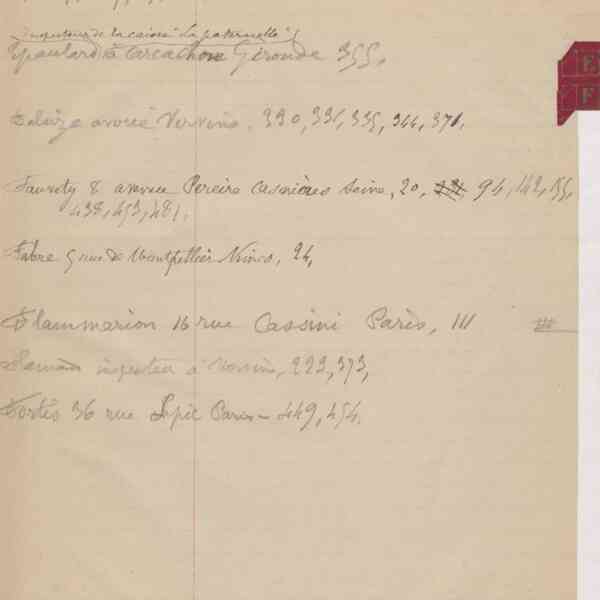 Inspecteur de la caisse "La paternelle"
Epaulard à Arcachon Gironde 355,
avoué Vervins, 330, 331, 335, 344, 371,
Fauvety 8 avenue Pereire Asnières Seine, 20, 94, 142, 155,
438, 453, 481,
Fabre 5 rue de Montpellier Nimes, 24,
Flammarion 16 rue Cassini Paris, 111
inspecteur à 223, 373,
Fortis 36 rue Lepic Paris - 449, 454,
E
F